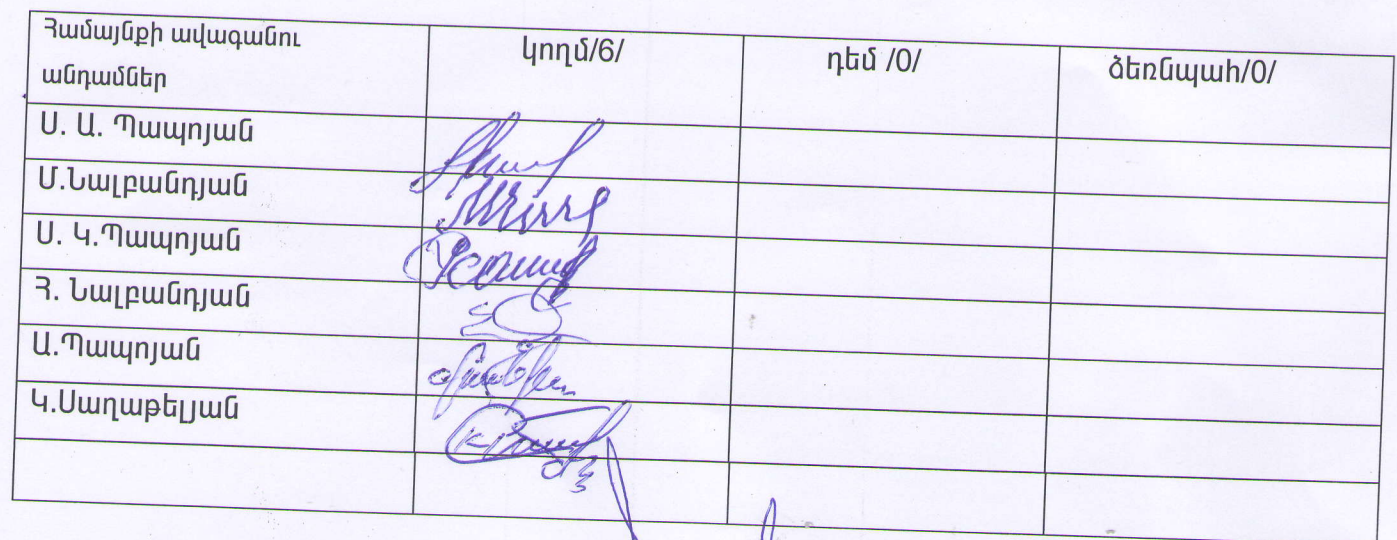 Համայնքի ավագանու
անդամներ
կողմ/6/
դեմ /0/
ձեռնպահ/0/
Ս. Ա. Պապոյան
Մ.Նալբանդյան
Ս. Կ.Պապոյան
Հ. Նալբանդյան
Ա.Պապոյան
Կ.Սաղաթելյան